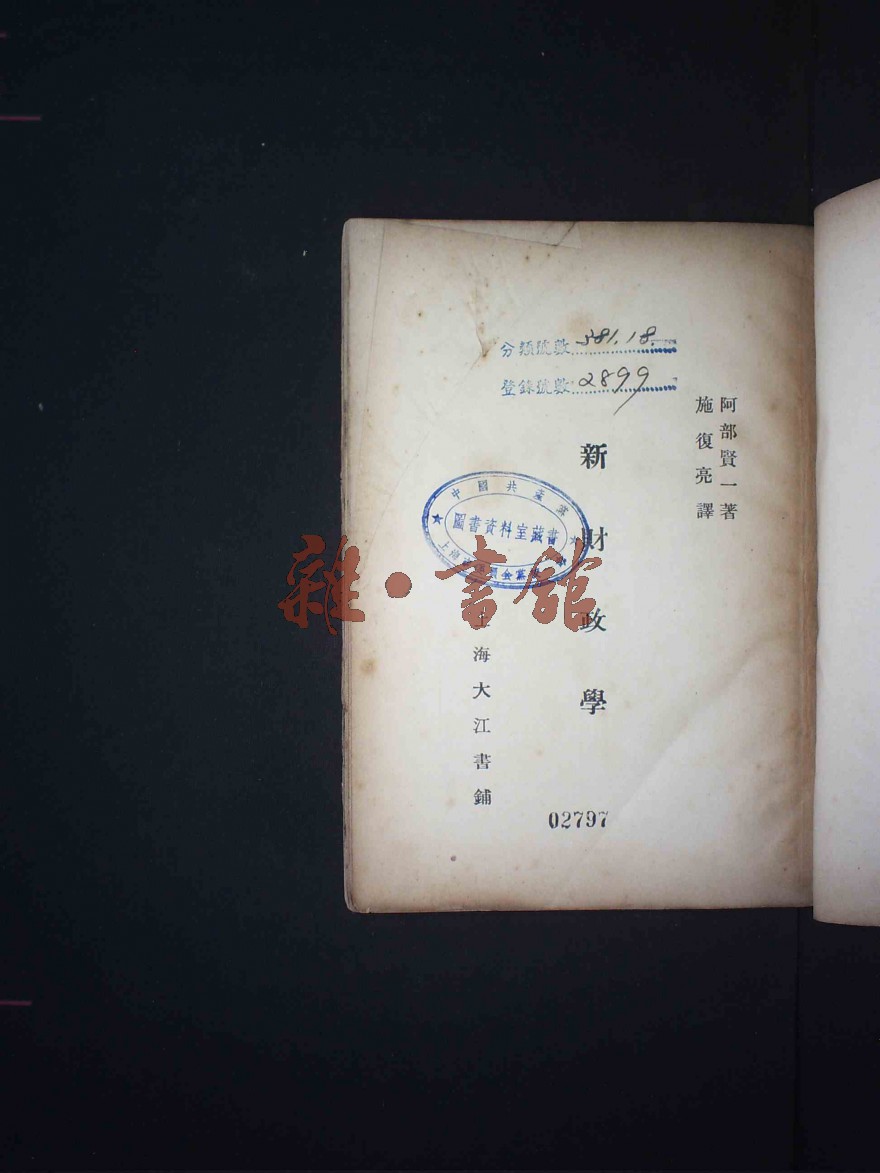 分類號數 381.18.
登錄號數 2899
阿部賢一著
施復亮譯
新財政學
中國共產黨
圖書資料室藏書
上海大江書鋪
02797
雜·書館